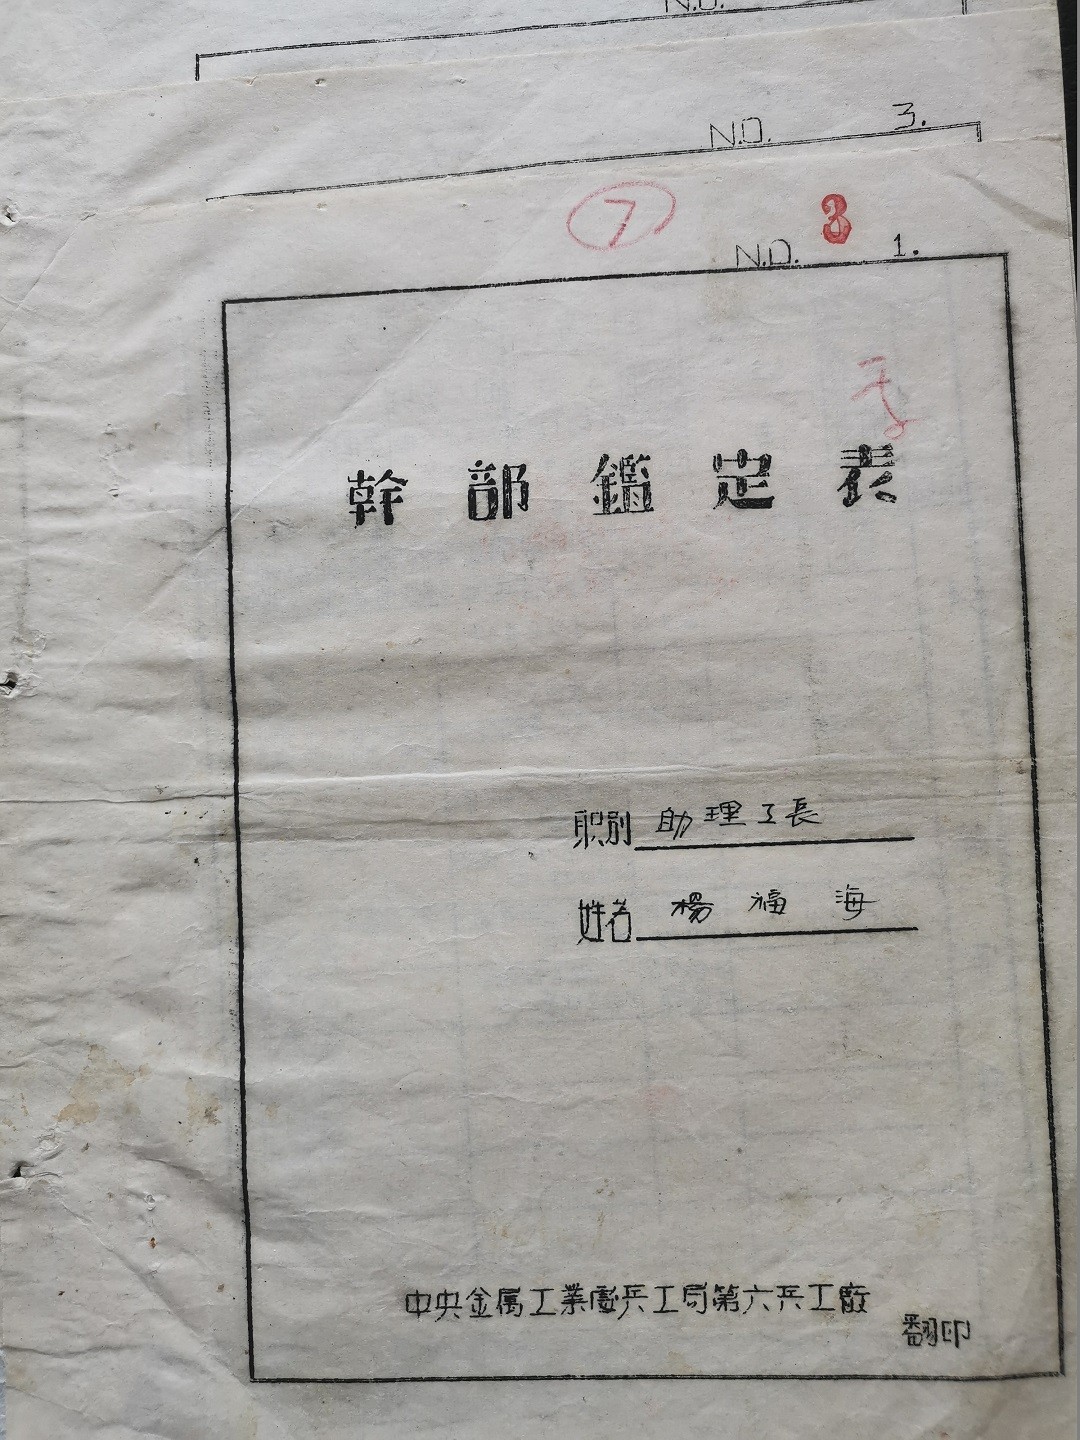 N.O.
N.O. 3.
7
3
N.O. 1.
幹部鑑定表
职别 助理工長
姓名 楊福海
中央金属工業處兵工局第六兵工廠
翻印